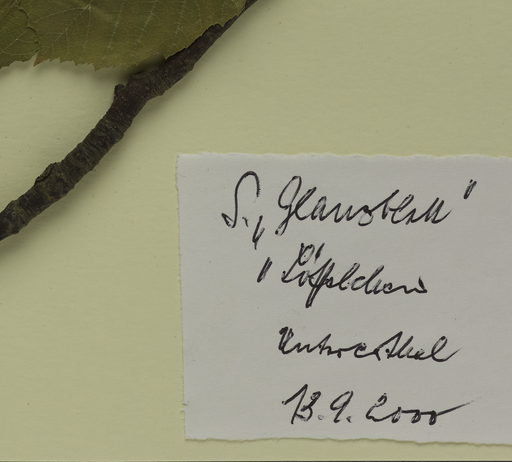 S. „Glanzblatt"
"Löffelchen
Unterrethal
13.9.2000